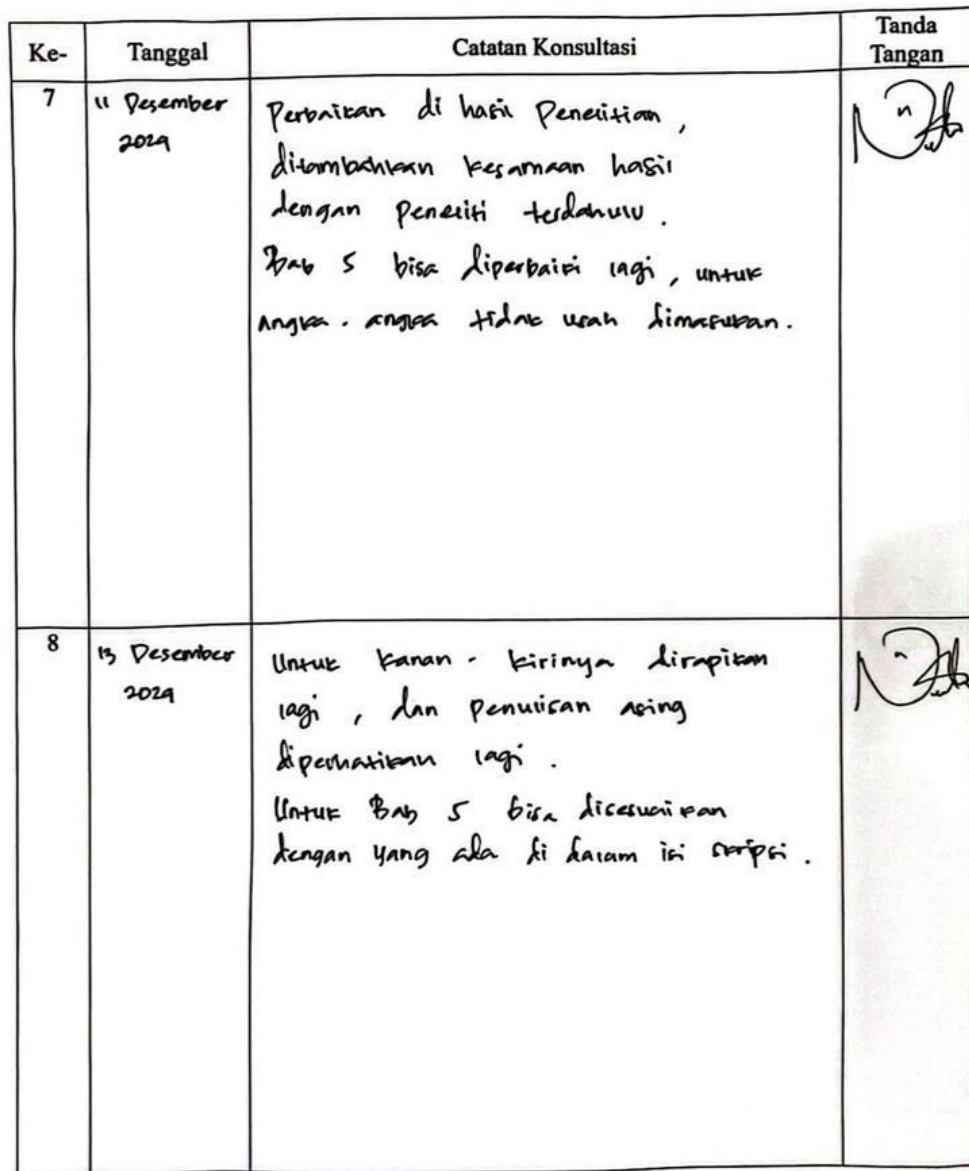 Ke- Tanggal Catatan Konsultasi Tanda Tangan
7 11 Desember 2024
Perbaikan di hasil Penelitian,
ditambahkan kesamaan hasil
dengan peneliti terdahulu.
Bab 5 bisa diperbaiki lagi, untuk
angka-angka tidak usah dimasukan.
8 13 Desember 2024
Untuk kanan-kirinya dirapikan
lagi, dan penulisan asing
diperhatikan lagi.
Untuk Bab 5 bisa disesuaikan
dengan yang ada di dalam isi skripsi.